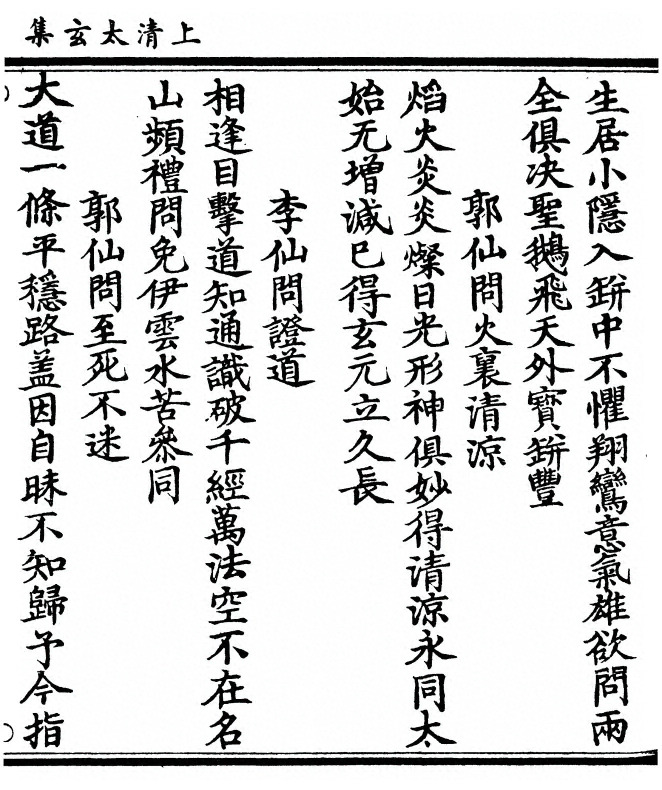 上清太玄集
生居小隱入缾中不懼翔鸞意氣雄欲問兩
全俱决聖鵝飛天外寳缾豐
郭仙問火裏清涼
焰火炎炎燦日光形神俱妙得清涼永同太
始无增減巳得玄元立久長
李仙問證道
相逢目擊道知通識破千經萬法空不在名
山頻禮問免伊雲水苦叅同
郭仙問至死不迷
大道一條平穩路盖因自昧不知歸予今指